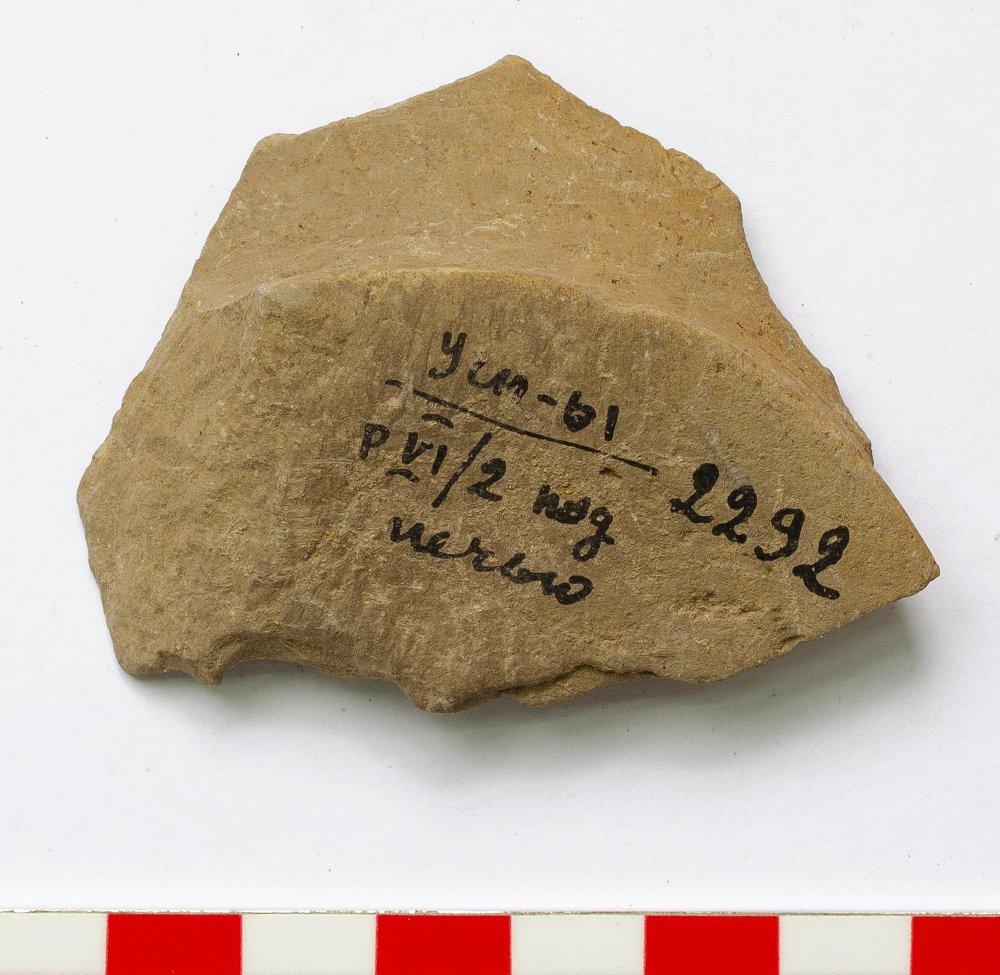 Уст-61
Р VI/2 под
печью
2292